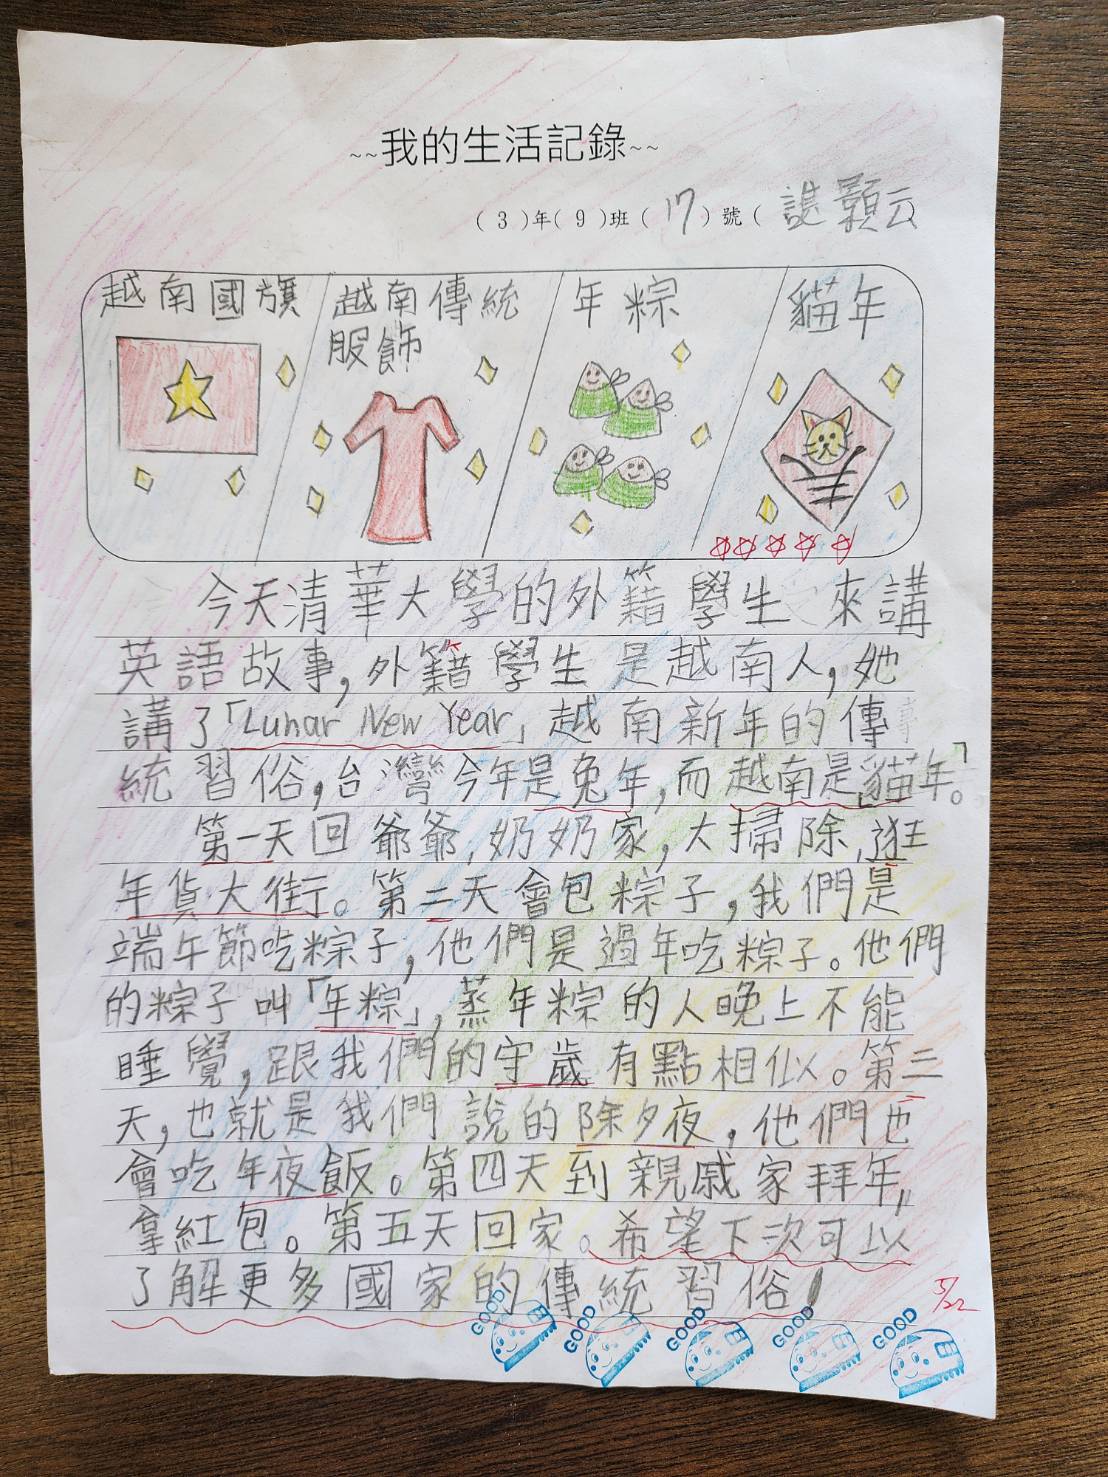 ~~我的生活記錄~~
(3)年(9)班(17)號(諶顥云
越南國旗
越南傳統
服飾
年粽
貓年
今天清華大學的外籍學生來講
英語故事,外籍學生是越南人,她
講了「Lunar New Year」越南新年的傳
統習俗,台灣今年是兔年,而越南是「貓年」。
第一天回爺爺,奶奶家,大掃除,逛
年貨大街。第二天會包粽子,我們是
端午節吃粽子,他們是過年吃粽子。他們
的粽子叫「年粽」,蒸年粽的人晚上不能
睡覺,跟我們的守歲有點相似。第三
天,也就是我們說的除夕夜,他們也
會吃年夜飯。第四天到親戚家拜年,
拿紅包。第五天回家。希望下次可以
了解更多國家的傳統習俗!
5/22
GOOD
GOOD
GOOD
GOOD
GOOD